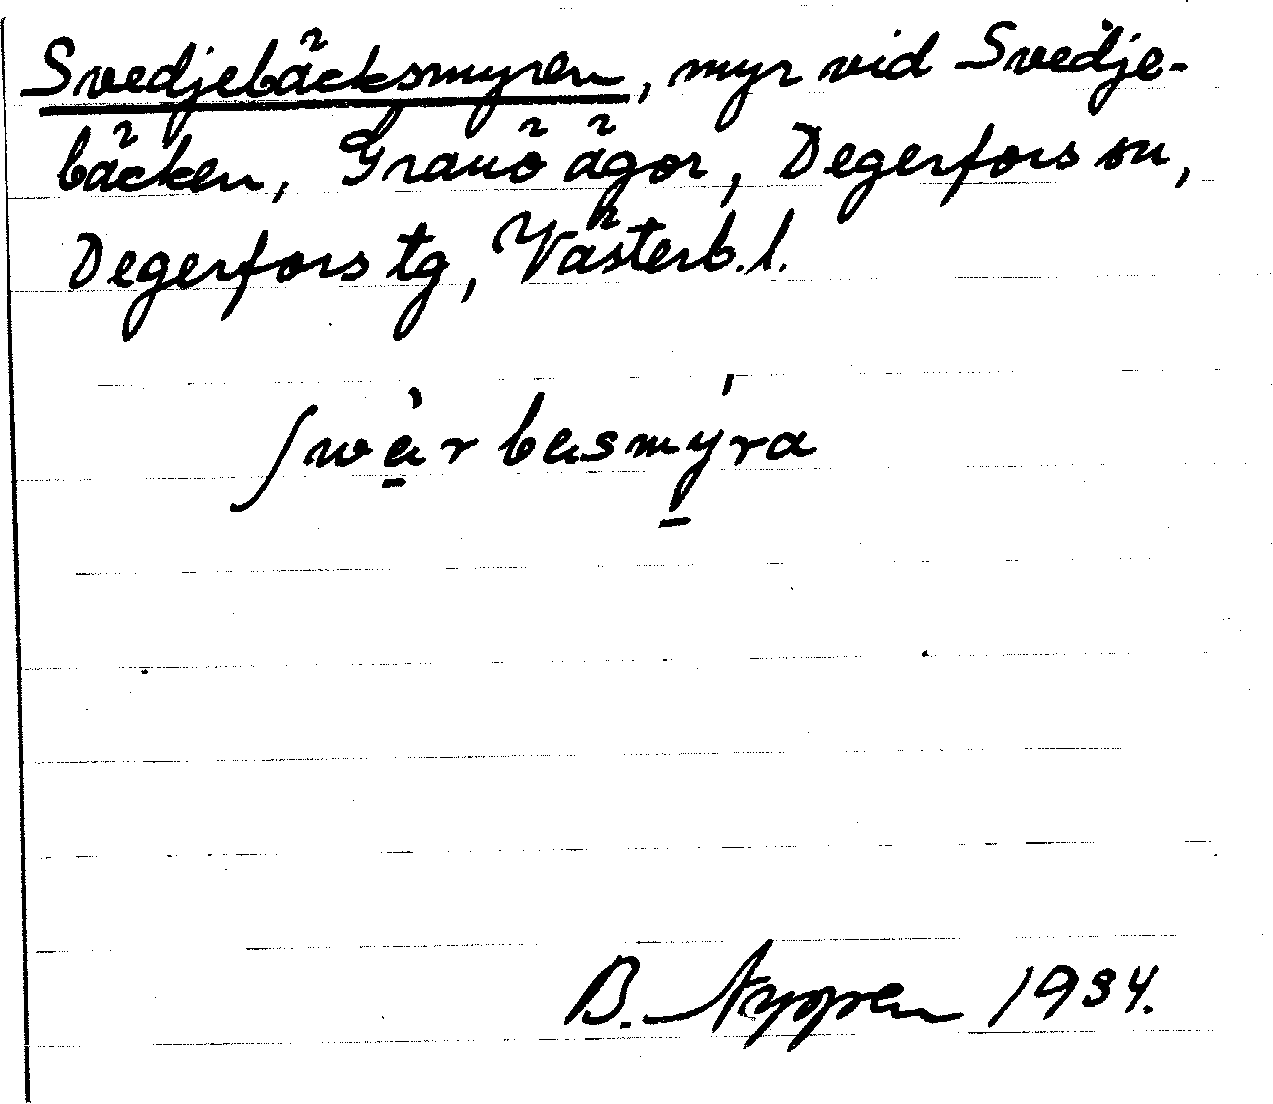 Svedjebäcksmyren, myr vid Svedje-
bäcken, Granö ägor, Degerfors sn,
Degerfors tg, Västerb. l.
B. 1934.